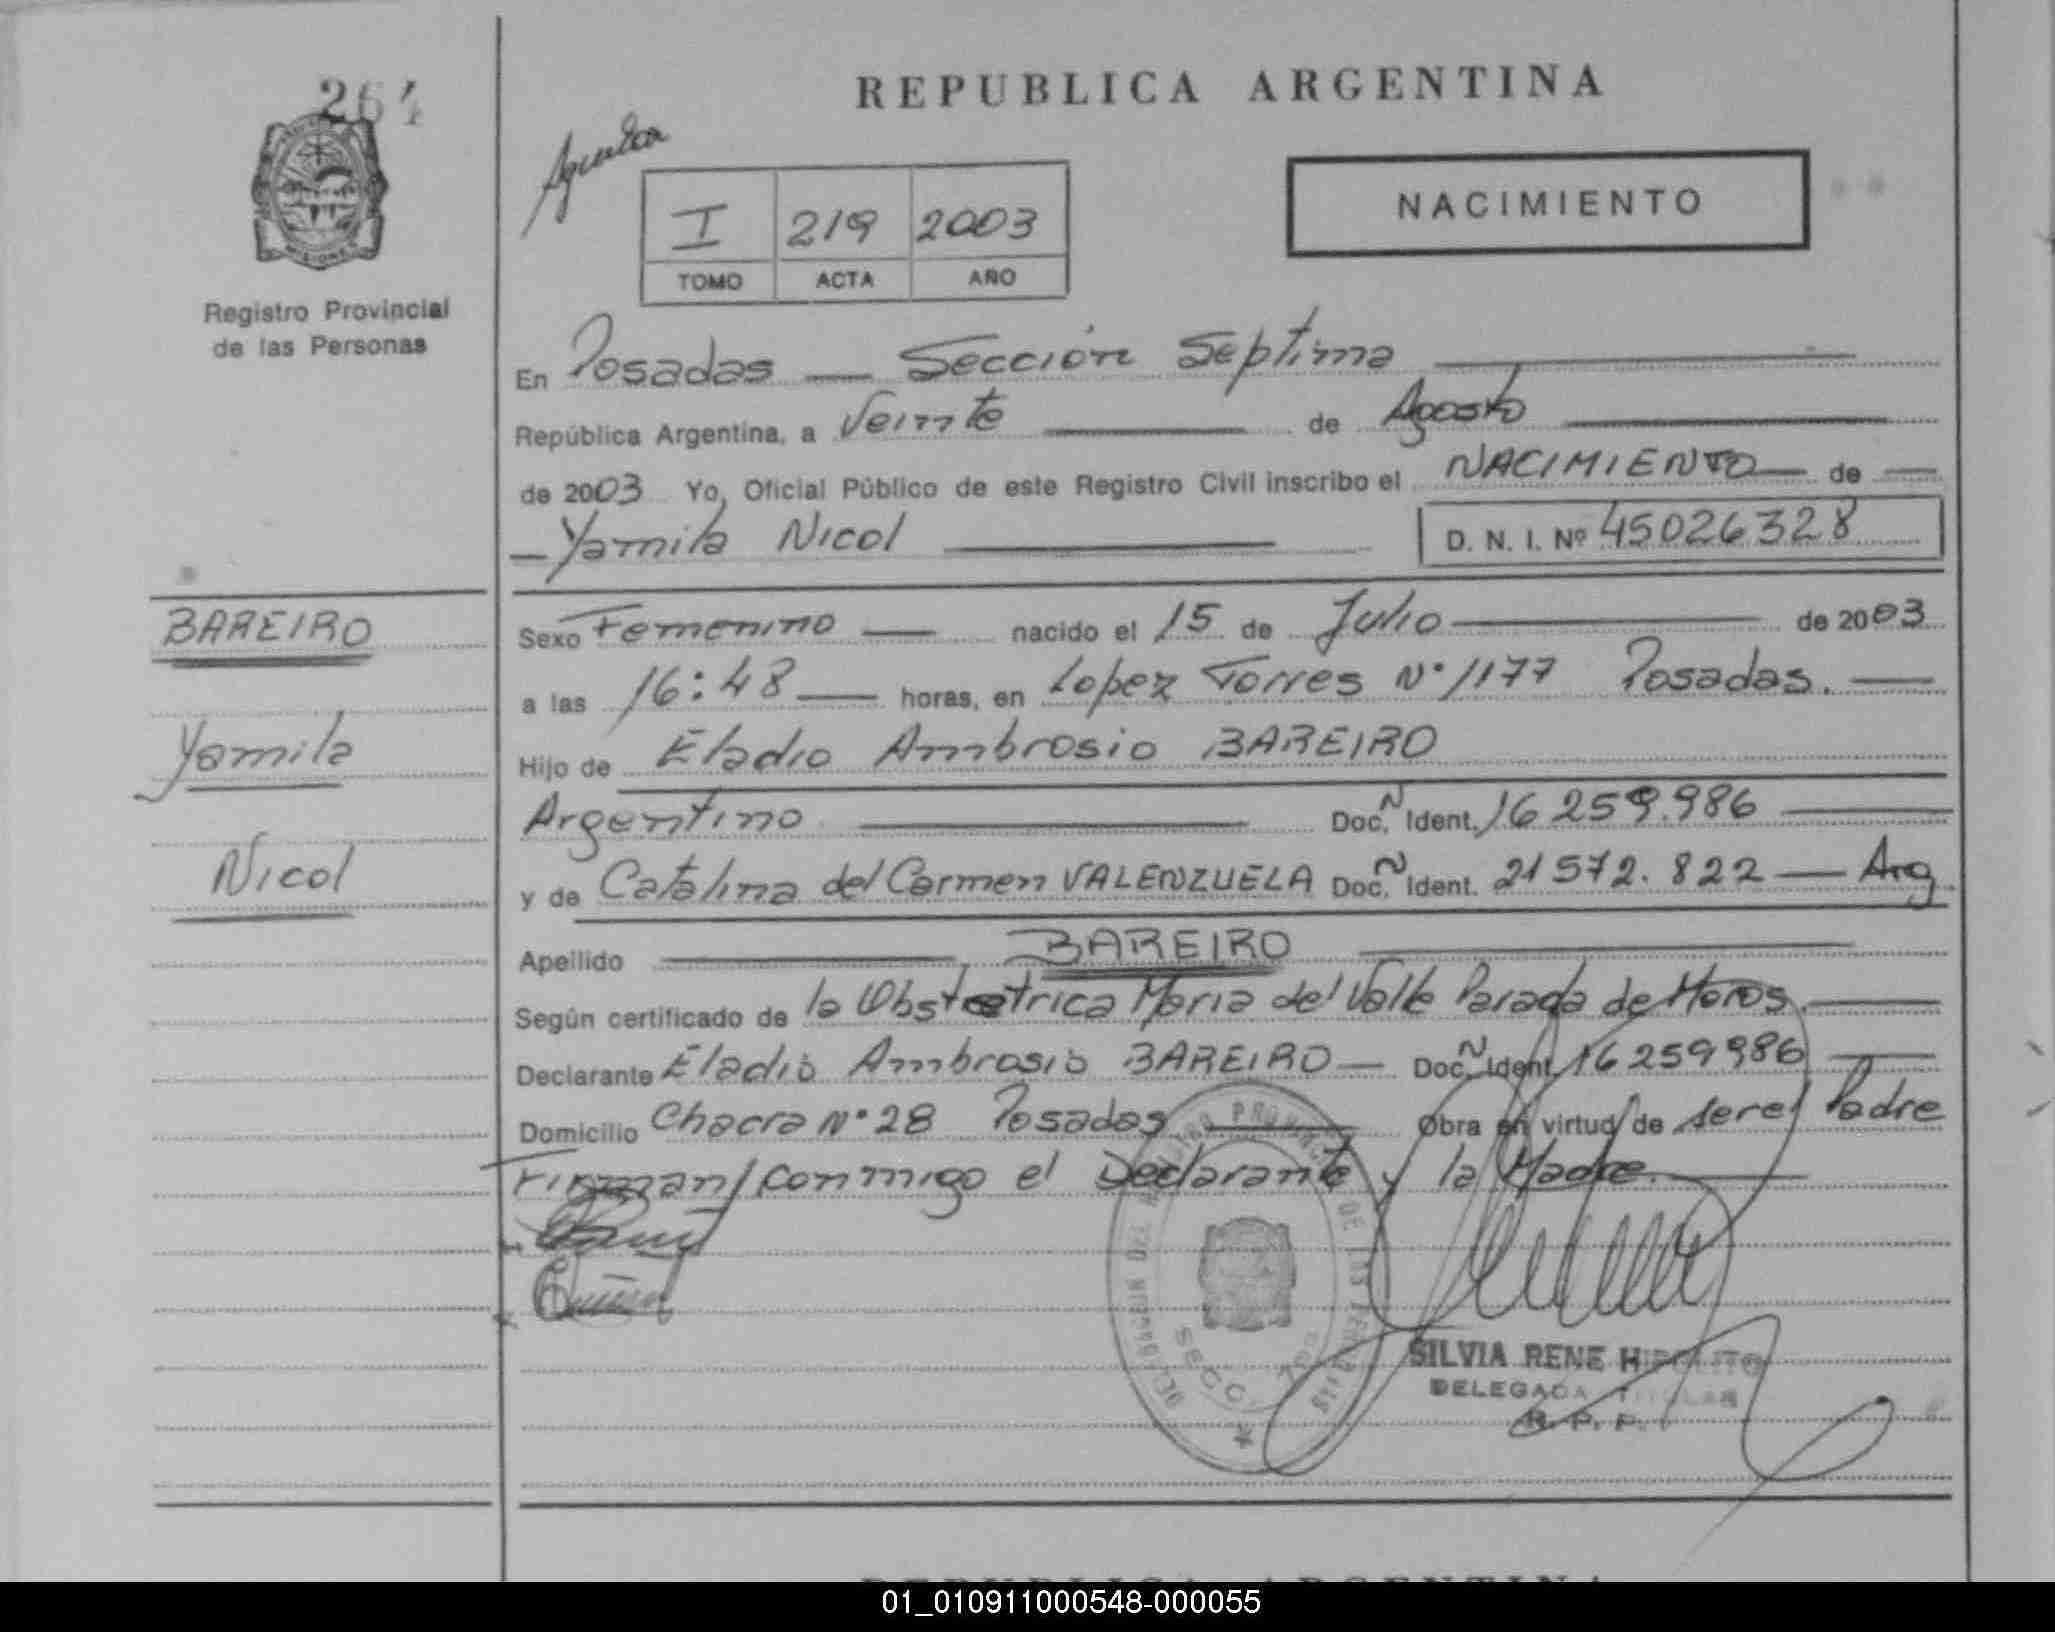 264
REPUBLICA ARGENTINA
MISIONES
Registro Provincial
de las Personas
I 219 2003
TOMO ACTA AÑO
NACIMIENTO
En Posadas — Sección Septima
República Argentina, a Veinte de Agosto
de 2003 Yo, Oficial Público de este Registro Civil inscribo el NACIMIENTO de
Yamila Nicol D. N. I. Nº 45026328
BAREIRO
Yamila
Nicol
Sexo Femenino nacido el 15 de Julio de 2003
a las 16:48 horas, en Lopez Torres Nº 1177 Posadas.
Hijo de Eladio Ambrosio BAREIRO
Argentino Doc. N Ident. 16 259.986
y de Catalina del Carmen VALENZUELA Doc. Ñ Ident. 21 572.822 — Arg
Apellido BAREIRO
Según certificado de la Obstetrica Maria del Valle Parada de Moros.
Declarante Eladio Ambrosio BAREIRO — Doc. N Ident. 16259986
Domicilio Chacra Nº 28 Posadas Obra en virtud de ser el Padre
Firman conmigo el Declarante y la Madre.
DELEGACION DEL REGISTRO PROVINCIAL DE LAS PERSONAS
SECC.
SILVIA RENE HIPOLITO
DELEGADA TITULAR
R. P. P.
REPUBLICA ARGENTINA
01_010911000548-000055